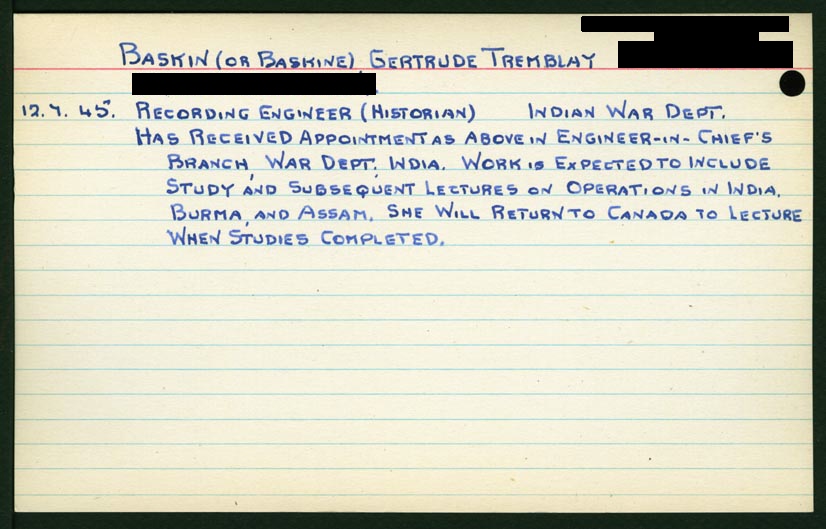 BASKIN (OR BASKINE), GERTRUDE TREMBLAY
12.7.45. RECORDING ENGINEER (HISTORIAN) INDIAN WAR DEPT.
HAS RECEIVED APPOINTMENT AS ABOVE IN ENGINEER-IN-CHIEF'S
BRANCH, WAR DEPT., INDIA. WORK IS EXPECTED TO INCLUDE
STUDY AND SUBSEQUENT LECTURES ON OPERATIONS IN INDIA,
BURMA, AND ASSAM. SHE WILL RETURN TO CANADA TO LECTURE
WHEN STUDIES COMPLETED.